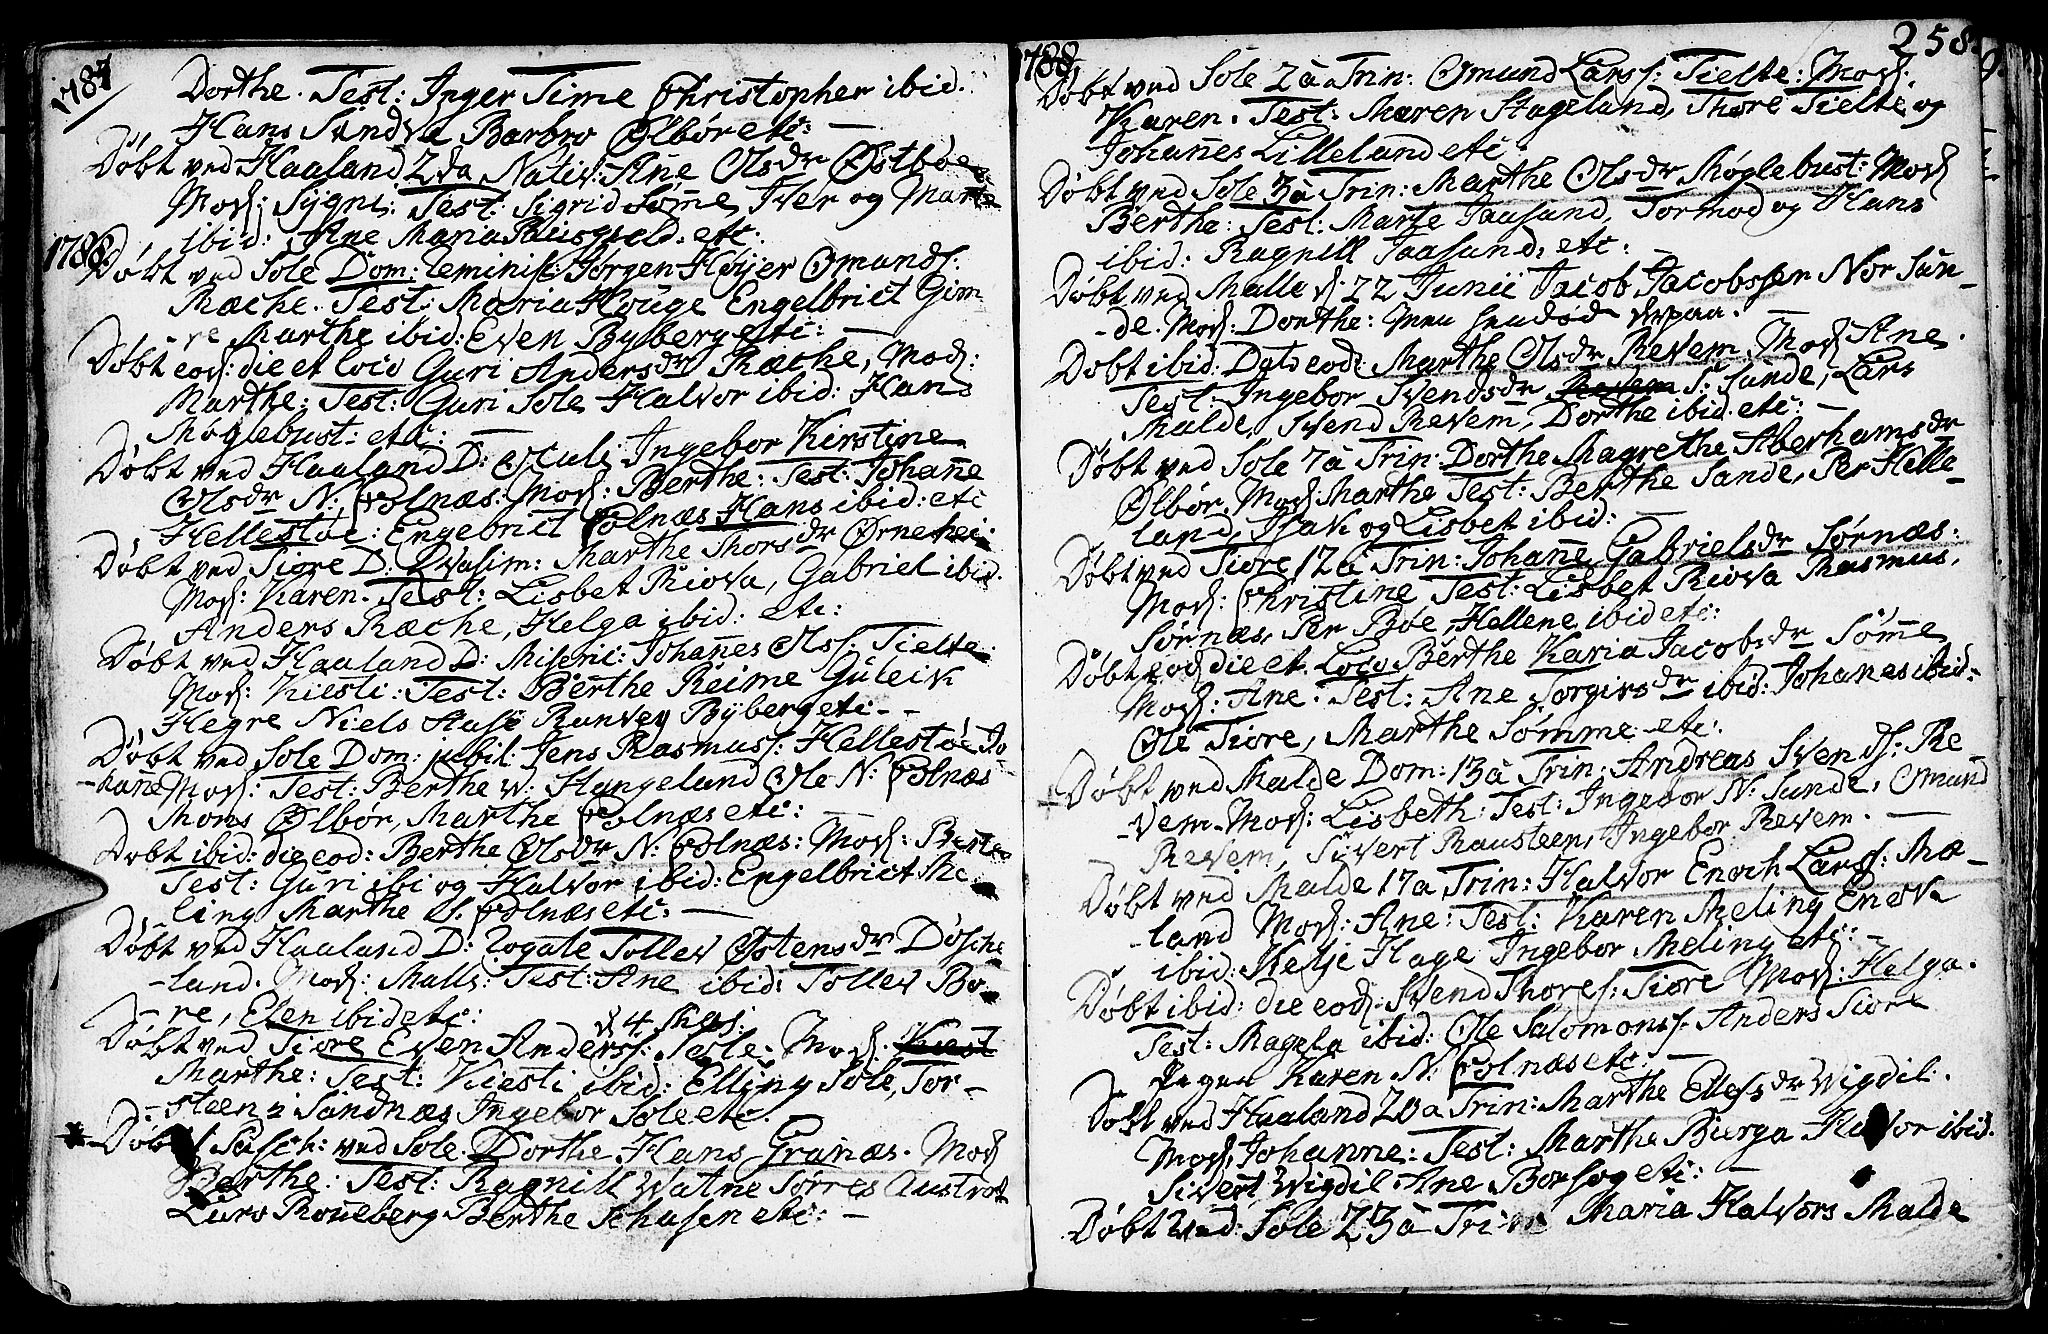 1787
Dorthe. Test: Inger Time Christopher ibid:
Hans Sandva Barbro Ølbør etc:
Døbt ved Haaland 2da Nativ: Ane Olsdr Østbøe
Mod: Sygni: Test: Sigrid Sømme, Iver og Marte
ibid: Ane Maria etc:
1788.
Døbt ved Sole Dom: Reminisc: Jørgen Høyer Omunds:
Ræche. Test: Maria Houge Engelbrict Gim
-re Marthe ibid: Even Byberg etc:
Døbt eod: die et loco Guri Andersdr Ræche, Mod:
Marthe: Test: Guri Sole Halvor ibid: Hans
Møglebust: etc:
Døbt ved Haaland D: Oculi Ingebor Kirstine
Olsdr N: Colnæs: Mod: Berthe: Test: Johanne
Hellestøe: Engebrict Colnæs Hans ibid: etc
Døbt ved Tiore D: Qvasim: Marthe Thorsdr Ørnehei
Mod: Karen. Test: Lisbet Riova, Gabriel ibid.
Anders Ræche, Helga ibid: etc:
Døbt ved Haaland D: Miseric: Johannes Ols: Tielte:
Mod: Kiesti: Test: Berthe Reime Guleik
Hegre Niels Runvey Byberg etc--
Døbt ved Sole Dom: jubil: Jens Rasmuss: Hellestøe Jo
-hanne Mod: Test: Berthe v: Hangeland Ole N: Colnæs
Mons Ølbør, Marthe Colnæs etc:
Døbt ibid: die eod: Berthe Olsdr N: Colnæs: Mod: Berte
Test: Guri ibi og Halvor ibid: Engelbrict Me
ling Marthe S. Colnæs etc:
Døbt ved Haaland D: rogate Tollev Østensdr Døsche
-land. Mod: Malli: Test: Ane ibid: Tollev Bo
-re, Elen ibid etc:
d 4. Maj:
Døbt ved Tiore Even Anderss: Sole: Mod: Kiest
Marthe: Test: Kiesti ibid: Elling Sole, Tor-
-steen i Sandnæs Ingebor Sole etc.
Døbt Pasch: ved Sole. Dorthe Hans Granæs. Mod
Berthe: Test: Ragnill Watne Torres Austrot
Luro Roneberg Berthe Schasen etc:
1788
258.
Døbt ved Sole 2à Trin: Omund Larss: Tielte: Mod:
Karen. Test: Maren Hageland, Thore Tielte og
Johannes Lilleland etc
Døbt ved Sole 3à Trin: Marthe Olsdr Møglebust: Mod
Berthe: Test: Marte Jaasund, Tormod og Hans
ibid: Ragnill Jaasund: etc:
Døbt ved Malle d: 22 Junii Jacob Jacobssen Nor Sun-
-de. Mod: Dorthe: Men hendød derpaa.
Døbt ibid: Dato eod: Marthe Olsdr Revem, Mod Ane.
Test: Ingebor Svendsdr S: Sunde, Lars
Malde, Svend Revem, Dorthe ibid. etc:
Døbt ved Sole 7à Trin: Dorthe Magrethe Aberhamsdr
Ølbør. Mod: Marthe Test: Berthe Sande, Per Helle-
land, Isak og Lisbet ibid:
Døbt ved Tiore 12à Trin: Johanne Gabrielsdr Sørnæs:
Mod: Christine Test: Lisbet Riova Rasmus,
Sørnæs, Per Bøe, Hellene ibid etc:
Døbt eod: die et Loco Berthe Karia Jacobsdr Sømme
Mod: Ane. Test: Ane Torgirsdr ibid: Johanes ibid:
Ole Tiore, Marthe Sømme etc:
Døbt ved Malde Dom: 13à Trin: Andreas Svends: Re
-vem. Mod: Lisbeth: Test: Ingebor N: Sunde, Omund
Revem, Sivert Rausteen, Ingebor Revem.
Døbt ved Malde 17a Trin: Halvor Enoch Larss: Mæ-
-land Mod: Ane: Test: Karen Meling Eneva
ibid: Ketje Hage Ingebor Meling etc:-
Døbt ibid: die eod: Svend Thores: Tiore Mod: Helga.
Test: Magela ibid: Ole Salomons. Anders Tiore
Karen N: Colnæs etc.
Døbt ved Haaland 20a Trin: Marthe Ellefsdr Wigdil.
Mod, Johanne: Test: Marthe Bierga Halvor ibid.
Sivert Wigdil Ane Borsog etc:
Døbt ved: Sole 23à Trin Maria Halvors Malde